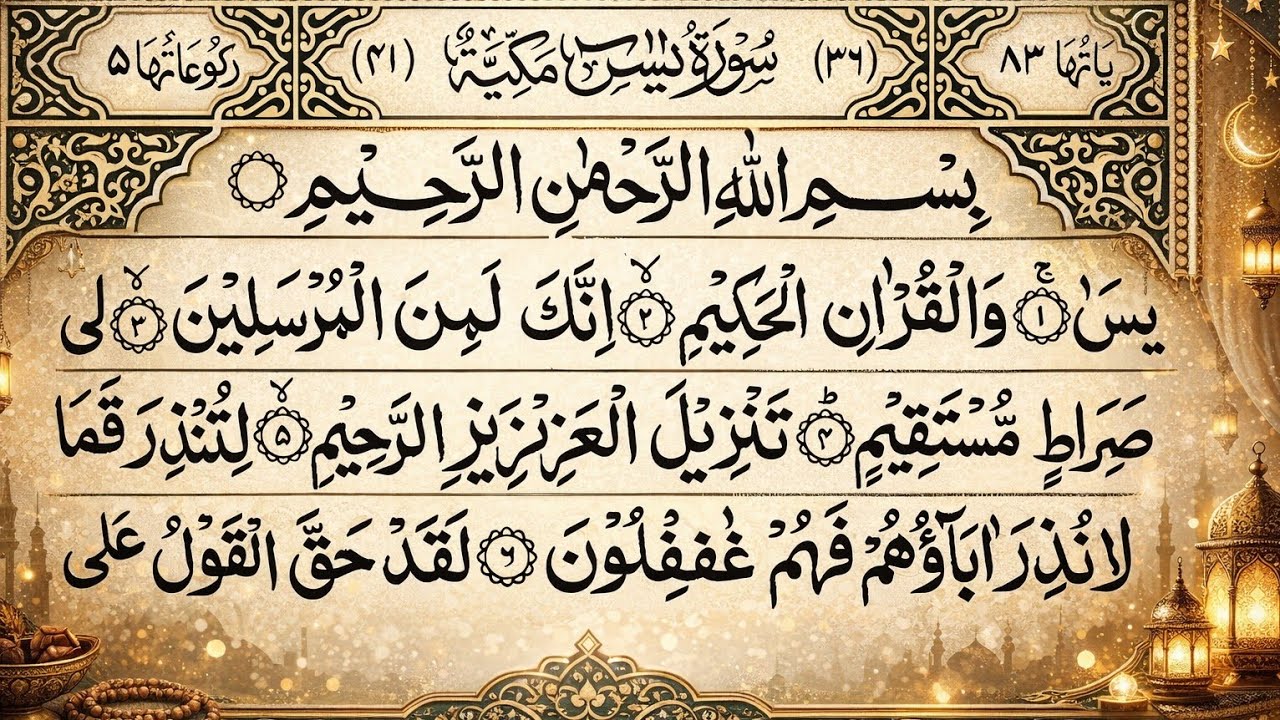 يَاتُهَا ٨٣ (٣٦) سُوْرَةُ يٰسٓ مَكِّيَّةٌ (٤١) رُكُوعَاتُهَا ٥
بِسْمِ اللهِ الرَّحْمٰنِ الرَّحِيْمِ
يسَٰ ۝١ وَالْقُرْاٰنِ الْحَكِيْمِ ۝٢ اِنَّكَ لَمِنَ الْمُرْسَلِيْنَ ۝٣ لى
صَرَاطٍ مُّسْتَقِيْمٍ ۝۴ تَنْزِيْلَ الْعَزِيْزِيْزِ الرَّحِيْمِ ۝۵ لِتُنْذِرَ قَمَا
لَا نُذِرَ اٰبَآؤُهُمْ فَهُمْ غٰفِفِلُوْنَ ۝۶ لَقَدْ حَقَّ الْقَوْلُ عَلى